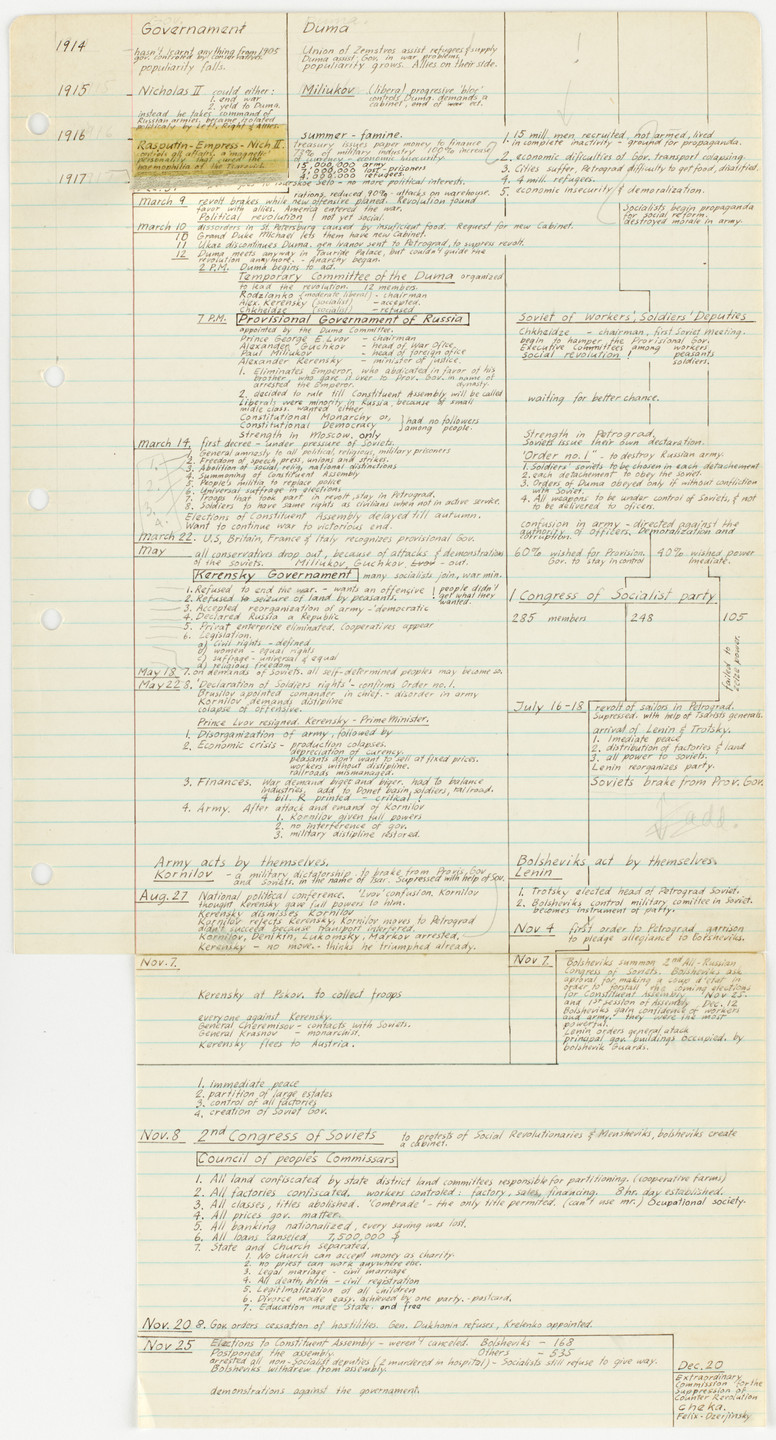 Governament
Duma
1914
hasn't larnt anything from 1905
gov. controled by conservatives.
popularity falls.
Union of Zemstvos assist refugees & supply
Duma assist Gov. in war problems.
populiarity grows. Allies on their side.
1915
Nicholas II could either:
1. end war
2. yeld to Duma.
instead he takes command of
Russian armies, became isolated
politicaly by Left, Right & allies.
Miliukov (liberal progresive 'bloc'
controls Duma. demands a
cabinet, end of war etc.
1916
Rasputin - Empress - Nich II.
control all affairs
personality that cured the
hormophilia of the Tsarevic.
summer - famine.
Treasury issues paper money to finance
75% of military industry 100% increase
of currency - economic insecurity
15,000,000 army
2,000,000 lost - prisoners
4,000,000 refugees.
1. 15 mill. men recruited, not armed, lived
in complete inactivity - ground for propaganda.
2. economic dificulties of Gov. transport colapsing.
3. Cities suffer, Petrograd difficulty to get food, disatified.
4. 4 mill. refugees.
5. economic insecurity & demoralization.
1917
Selo - no more political interests.
rations, reduced 40% - attacks on warehouse.
March 9 revolt brakes while new offensive planed. Revolution found
favor with allies. America entered the war.
Political revolution, not yet social.
Socialists begin propaganda
for social reform.
destroyed morale in army.
March 10 dissorders in St. Petersburg caused by insuficient food. Request for new Cabinet.
10 Grand Duke Michael lets them have new Cabinet.
11 Ukaz discontinues Duma, gen Ivanov sent to Petrograd, to supress revolt.
12 Duma meets anyway in Tauride Palace, but couldn't guide the
revolution anymore. - Anarchy began.
2 P.M. Duma begins to act.
Temporary Committee of the Duma organized
to lead the revolution. 12 members.
Rodzianko (moderate liberal) - chairman
Alex. Kerensky (socialist) - accepted.
Chkheidze (social) - refused
7 P.M. Provisional Governament of Russia
appointed by the Duma Committee.
Prince George E. Lvov - chairman
Alexander Guchkov - head of War Ofice,
Paul Miliukov - head of foreign ofice
Alexander Kerensky - minister of justice.
1. Eliminates Emperor, who abdicated in favor of his
brother, who gave it over to Prov. Gov. in name of
arrested the Emperor. dynasty.
2. decided to rule till Constituent Assembly will be called
Liberals were minority in Russia, because of small
midle class. wanted either
Constitutional Monarchy or, } had no followers
Constitutional Democracy } among people.
Strength in Moscow, only
Soviet of Workers', Soldiers' Deputies
Chkheidze - chairman, first Soviet meeting.
begin to hamper the Provisional Gov.
Executive Committees among workers,
social revolution ! peasants
soldiers.
waiting for better chance.
March 14, first decree - under pressure of Soviets.
1. General amnesty to all political, religious, military prisoners
2. Freedom of speech, press, unions and strikes.
3. Abolition of social, relig, national distinctions
4. Summoning of Constituent Assembly
5. People's militia to replace police
6. Universal suffrage in elections
7. Troops that took part in revolt, stay in Petrograd.
8. Soldiers to have same rights as civilians when not in active service.
Elections of Constituent Assembly delayed till autumn.
Want to continue war to victorious end.
Strength in Petrograd,
Soviet issue their own declaration.
'Order no. 1" - to destroy Russian army.
1. Soldiers' soviets to be chosen in each detachement
2. each detachement to obey the soviet.
3. Orders of Duma obeyed only if without confliction
with Soviet.
4. All weapons to be under control of Soviets, & not
to be delivered to oficers.
confusion in army - directed against the
authority of officers, Demoralization and
corruption.
March 22. U.S, Britain, France & Italy recognizes provisional Gov.
May all conservatives drop out, because of attacks & demonstrations
of the soviets. Miliukov, Guchkov, Lvov - out.
60% wished for Provision. Gov. to stay in control
40% wished power Imediate.
Kerensky Governament many socialists join, war min.
1. Refused to end the war. - wants an offensive } people didn't
2. Refused to seizure of land by peasants. } get what they wanted.
3. Accepted reorganization of army - 'democratic
4. Declared Russia a Republic
5. Privat enterprize eliminated. Cooperatives appear
6. Legislation.
a) civil rights - defined
b) women - equal rights
c) suffrage - universal & equal
d) religious freedom.
1 Congress of Socialist party.
285 members 248 105
failed to seize power.
May 18 7. on demands of Soviets. all self-determined peoples may become so.
May 22 8. 'Declaration of Soldiers rights' - confirms Order no. 1.
Brusilov apointed comander in chief. - disorder in army
Kornilov demands distipline
colapse of offensive.
Prince Lvov resigned. Kerensky - Prime Minister.
1. Disorganization of army, followed by
2. Economic crisis - production colapses.
depreciation of curency.
peasants don't want to sell at fixed prices.
workers without distipline.
railroads mismanaged.
3. Finances. War demand biger and biger. had to balance
industries, add to Donet basin, soldiers, railroad.
4 bil. R printed - critical !
4. Army. After attack and emand of Kornilov
1. Kornilov given full powers
2. no interference of gov.
3. military distipline restored.
July 16-18 revolt of sailors in Petrograd.
Supressed. with help of Tsarists generals.
arrival of Lenin & Trotsky.
1. Imediate peace
2. distribution of factories & land
3. all power to soviets.
Lenin reorganizes party.
Soviets brake from Prov. Gov.
add.
Army acts by themselves.
Kornilov - a military dictatorship. to brake from Provis. Gov
and Soviets. in the name of Tsar. Supressed with help of Sov.
Bolsheviks act by themselves
Lenin
1. Trotsky elected head of Petrograd Soviet.
2. Bolsheviks control military comittee in Soviet.
becomes instrument of party.
Aug. 27 National political conference. 'Lvov' confusion. Kornilov
thought Kerensky gave full powers to him.
Kerensky dismisses Kornilov
Kornilov rejects Kerensky, Kornilov moves to Petrograd
didn't succeed because transport interfered.
Kornilov, Denikin, Lukomsky, Markov arrested.
Kerensky - no move. - thinks he triumphed already.
Nov 4 first order to Petrograd garrison
to pledge allegiance to Bolsheviks.
Nov. 7.
Kerensky at Pskov. to collect troops
everyone against Kerensky.
General Cheremisov - contacts with Soviets.
General Krasnov - monarchist.
Kerensky flees to Austria.
Nov 7. Bolsheviks summon 2nd All-Russian
Congress of Soviets. Bolsheviks ask
aproval for making a coup d'etat in
order to forstall the coming elections
for Constituent Assembly. Nov 25.
and 1st session of Assembly Dec. 12
Bolsheviks gain confidence of workers
and army. they were the most
powerful.
Lenin orders general atack
principal gov. buildings occupied. by
bolshevik Guards.
1. immediate peace
2. partition of large estates
3. control of all factories
4. creation of Soviet Gov.
Nov. 8 2nd Congress of Soviets to protests of Social Revolutionaries & Mensheviks, bolsheviks create
a cabinet.
Council of people's Commissars
1. All land confiscated by state district land committees responsible for partitioning. (cooperative farms)
2. All factories confiscated. workers controled: factory, sales, financing. 8 hr. day established.
3. All classes, titles abolished. 'Combrade' - the only title permited. (can't use mr.) Ocupational society.
4. All prices gov. matter.
5. All banking nationalized, every saving was lost.
6. All loans canseled 7,500,000 $
7. State and Church separated.
1. No church can accept money as charity.
2. no priest can work anywhere else.
3. Legal mariage - civil marriage
4. All death, birth - civil registration
5. Legitimatization of all children
6. Divorce made easy. achieved by one party. - postcard.
7. Education made State. and free
Nov. 20 8. Gov. orders cessation of hostilities. Gen. Dukhonin refuses, Krelenko appointed.
Nov 25 Elections to Constituent Assembly - weren't canceled. Bolsheviks - 168
Postponed the assembly. Others - 535
arrested all non-Socialist deputies (2 murdered in hospital) - Socialists still refuse to give way.
Bolsheviks withdrew from assembly.
demonstrations against the governament.
Dec. 20
Extraordinary
Commission for the
Suppression of
Counter Revolution
cheka.
Felix - Dzerjinsky